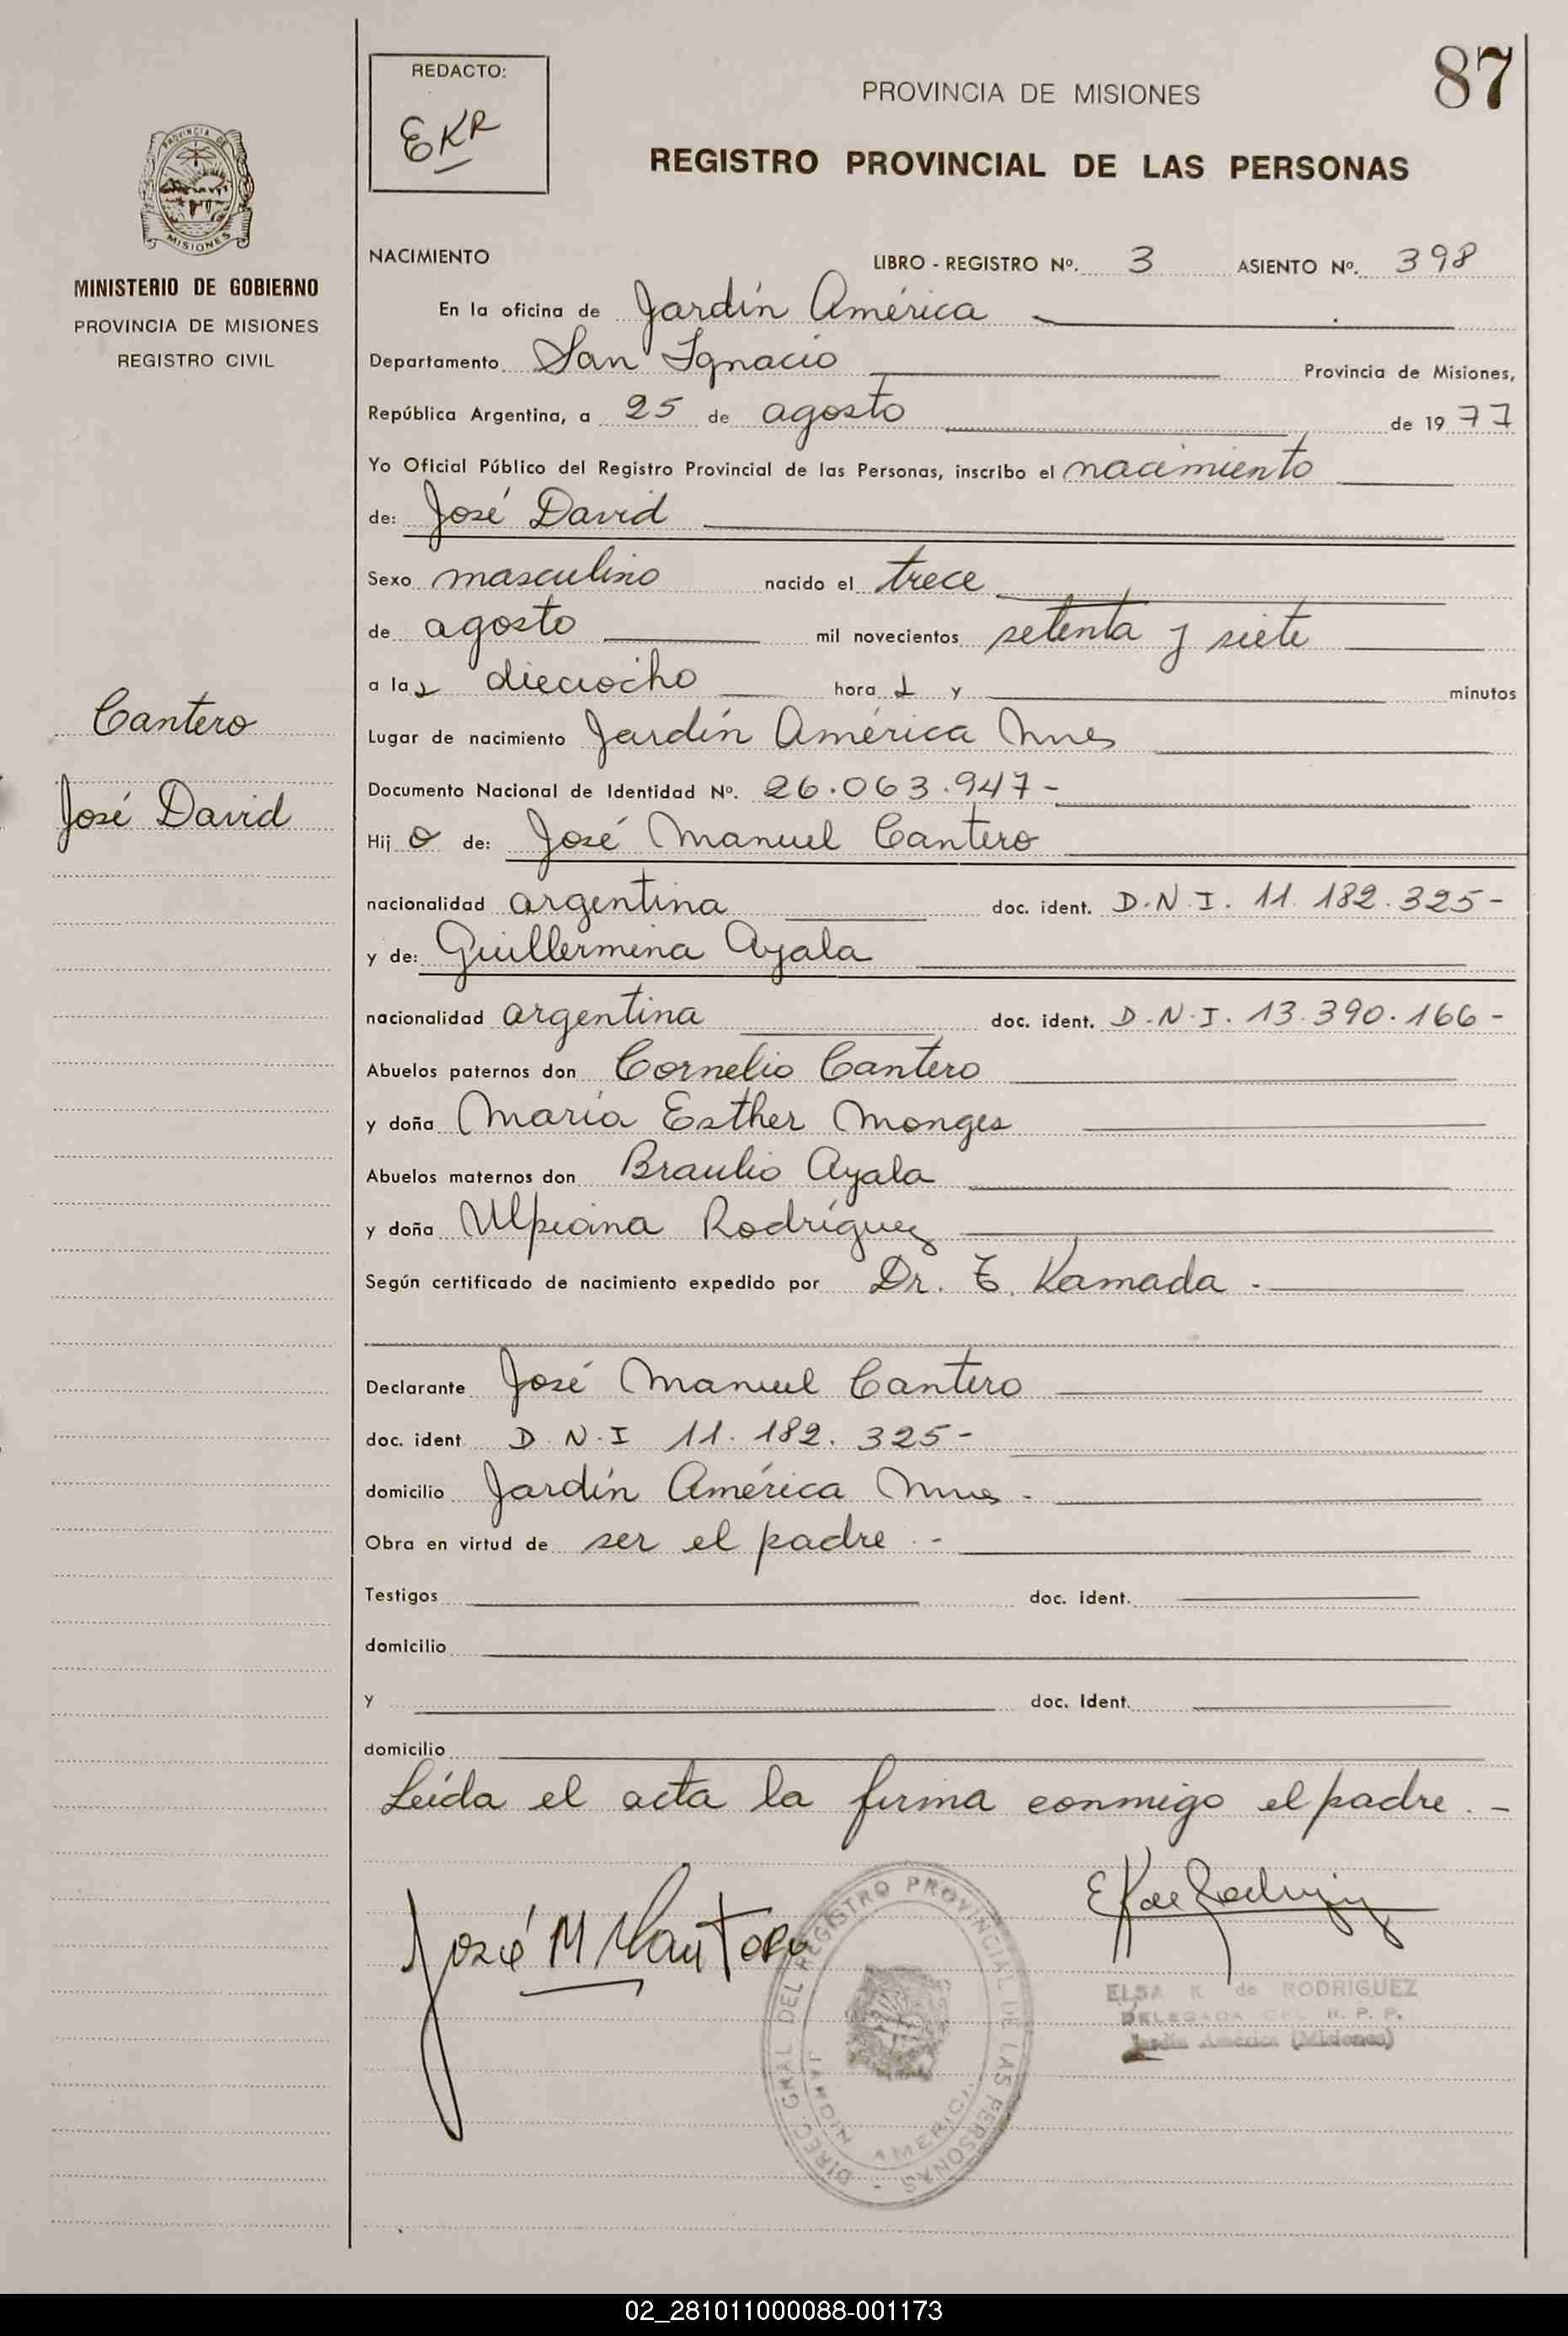 87
REDACTO:
EKR
PROVINCIA DE MISIONES
REGISTRO PROVINCIAL DE LAS PERSONAS
PROVINCIA DE
MISIONES
MINISTERIO DE GOBIERNO
PROVINCIA DE MISIONES
REGISTRO CIVIL
Cantero
José David
NACIMIENTO LIBRO - REGISTRO Nº. 3 ASIENTO Nº. 398
En la oficina de Jardín América
Departamento San Ignacio Provincia de Misiones,
República Argentina, a 25 de agosto de 1977
Yo Oficial Público del Registro Provincial de las Personas, inscribo el nacimiento
de: José David
Sexo masculino nacido el trece
de agosto mil novecientos setenta y siete
a las dieciocho horas y minutos
Lugar de nacimiento Jardín América Mnes
Documento Nacional de Identidad Nº. 26.063.947-
Hijo de: José Manuel Cantero
nacionalidad argentina doc. ident. D.N.I. 11.182.325-
y de: Guillermina Ayala
nacionalidad argentina doc. ident. D.N.I. 13.390.166-
Abuelos paternos don Cornelio Cantero
y doña María Esther Monges
Abuelos maternos don Braulio Ayala
y doña Ulpiana Rodríguez
Según certificado de nacimiento expedido por Dr. T. Kamada -
Declarante José Manuel Cantero
doc. ident D.N.I 11.182.325-
domicilio Jardín América Mnes -
Obra en virtud de ser el padre.-
Testigos doc. ident.
domicilio
y doc. Ident.
domicilio
Leída el acta la firma conmigo el padre.-
José M Cantero
EK de Rodríguez
DIREC. GRAL DEL REGISTRO PROVINCIAL DE LAS PERSONAS -
JARDIN AMERICA
ELSA K de RODRIGUEZ
DELEGADA DEL R. P. P.
Jardín América (Misiones)
02_281011000088-001173